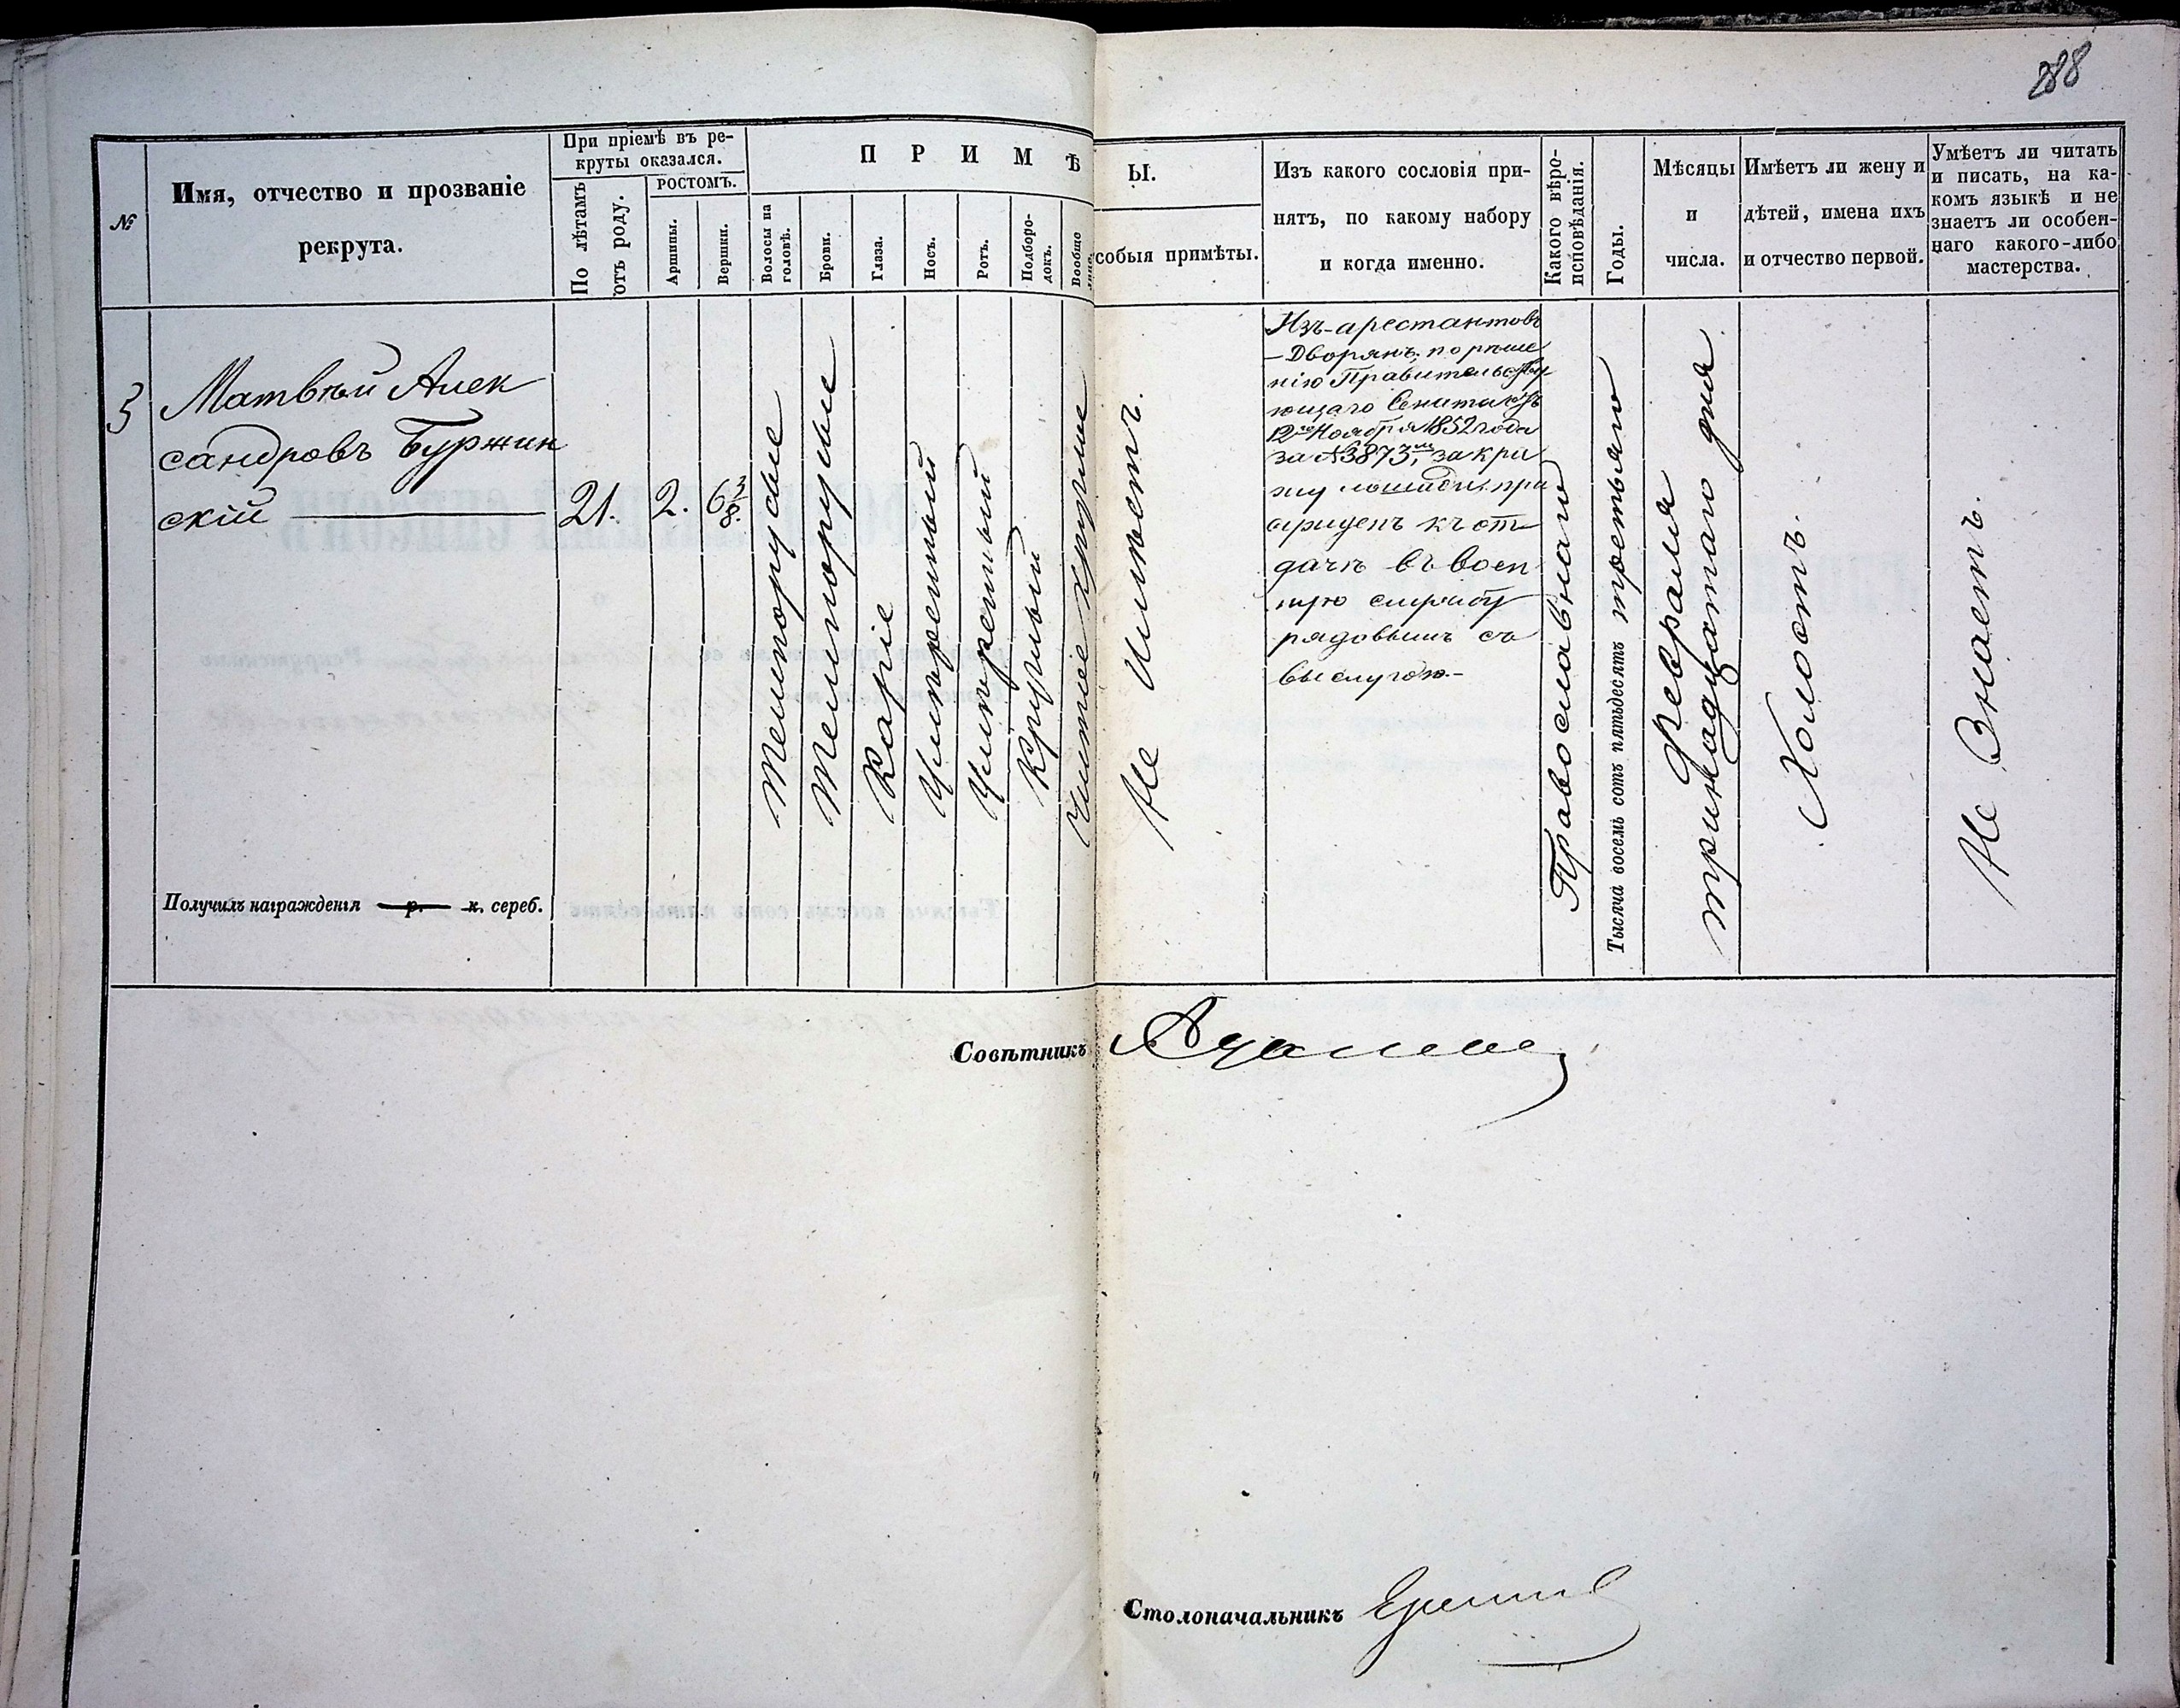 288
№
Имя, отчество и прозваніе
рекрута.
При пріемѣ въ ре-
круты оказался.
По лѣтамъ
отъ роду.
РОСТОМЪ.
Аршины.
Вершки.
П Р И М Ѣ
Волосы на
головѣ.
Брови.
Глаза.
Носъ.
Ротъ.
Подборо-
докъ.
Вообще
Ы.
собыя примѣты.
Изъ какого сословія при-
нятъ, по какому набору
и когда именно.
Какого вѣро-
исповѣданія.
Годы.
Мѣсяцы
и
числа.
Имѣетъ ли жену и
дѣтей, имена ихъ
и отчество первой.
Умѣетъ ли читать
и писать, на ка-
комъ языкѣ и не
знаетъ ли особен-
наго какого-либо
мастерства.
3
Матвѣй Алек
сандровъ Буржин
скій
21.
2.
6 3/8.
Темнорусые
Темнорусые
Каріе
Умѣренный
Умѣренный
Круглый
Чистое Круглое
Не Имѣетъ.
Изъ-арестантовъ
-Дворянъ, по рѣше
нію Правительству
ющаго Сената отъ
12го Ноября 1852 года
за №3873м, за кра
жу лошади, при
сужденъ къ от
дачѣ въ воен
ную службу
рядовымъ съ
выслугою.-
Православнаго
Тысяча восемь сотъ пятьдесятъ третьяго
Февраля
тринадцатаго дня
Холостъ.
Не Знаетъ.
Получилъ награжденія р. к. сереб.
Совѣтникъ
Столоначальникъ